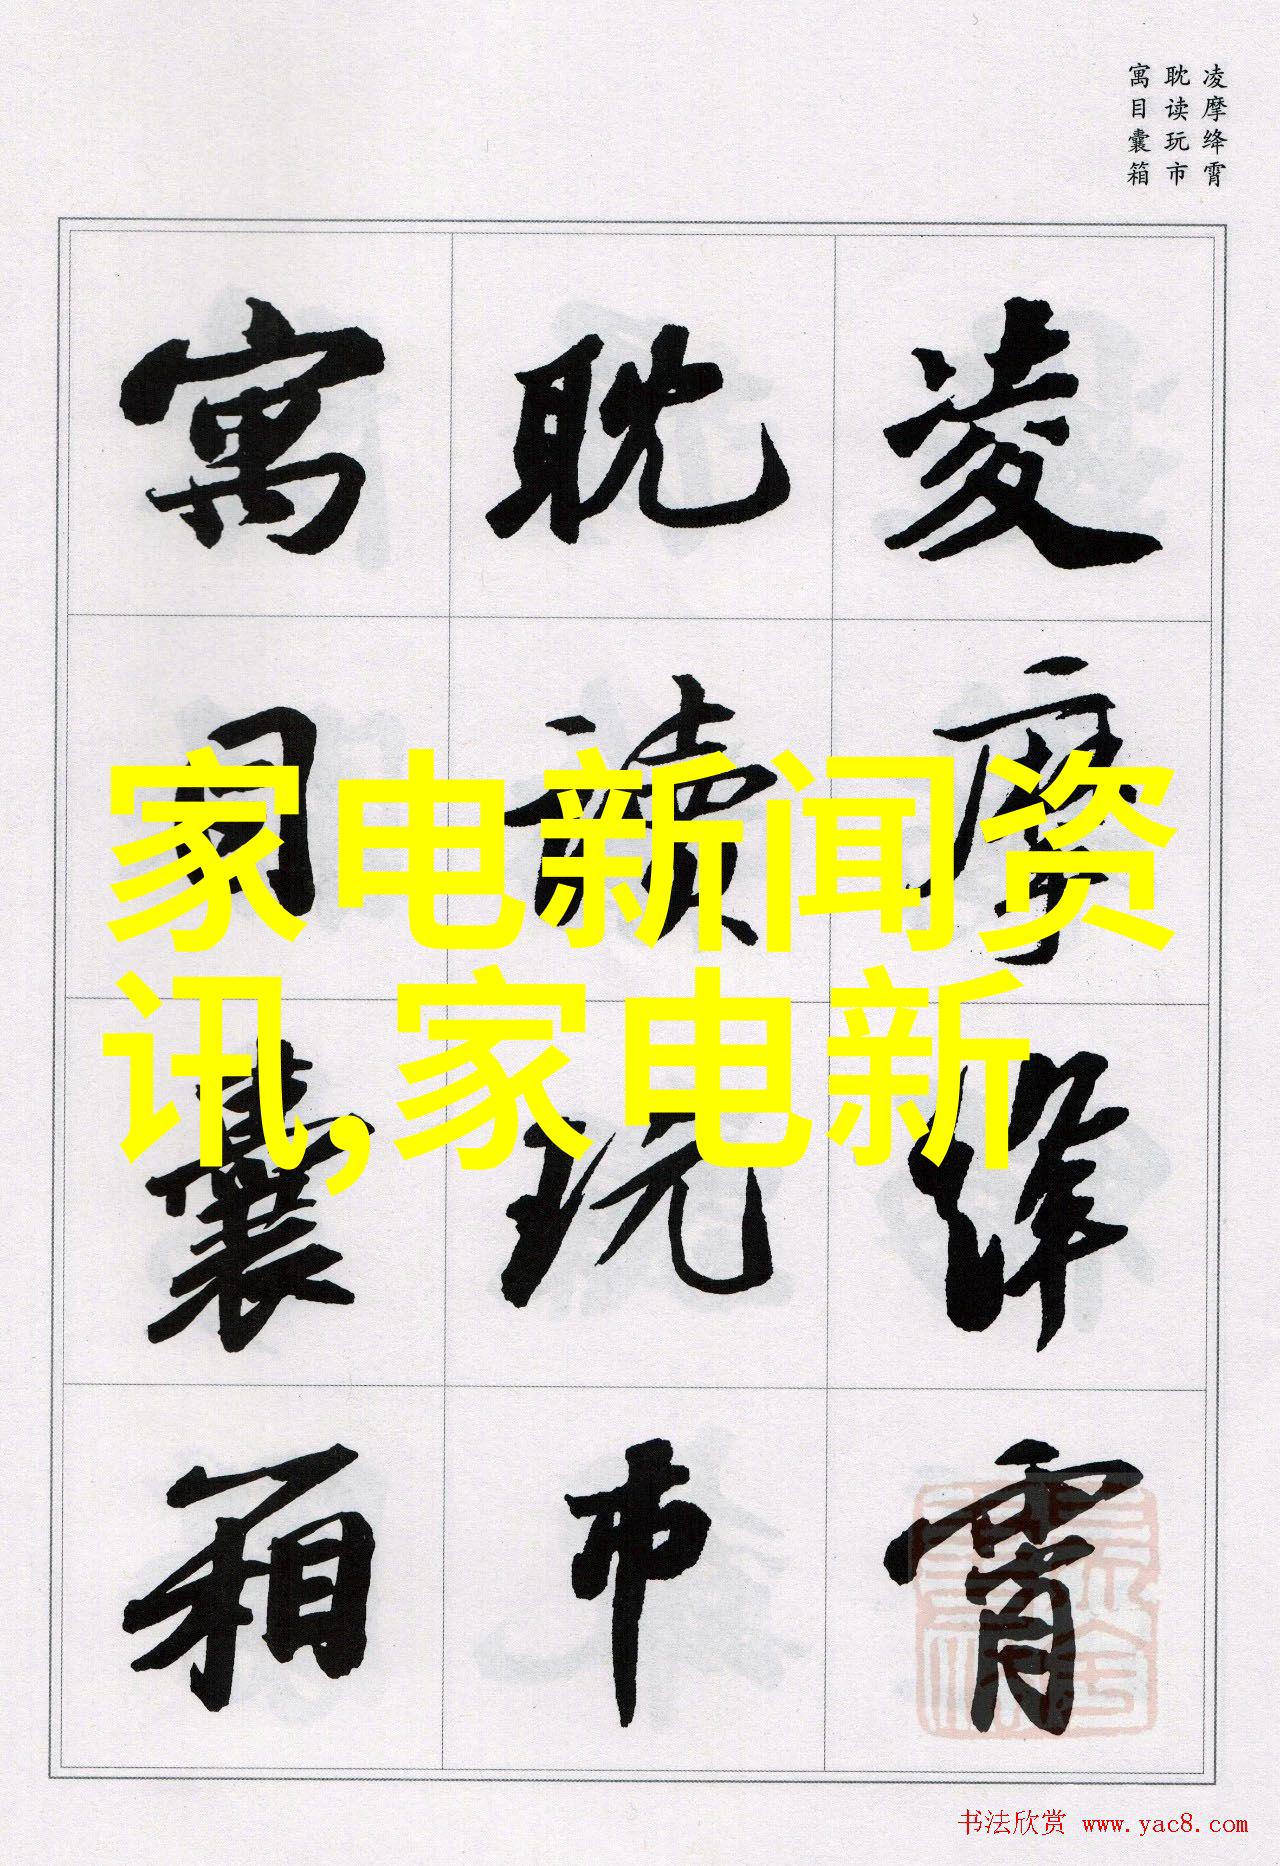 凌摩绛霄
耽读玩市
寓目囊箱
凌摩绛霄
耽讀玩市
寓目囊箱
家电新闻资
讯,家电新
书法欣赏 www.yac8.com